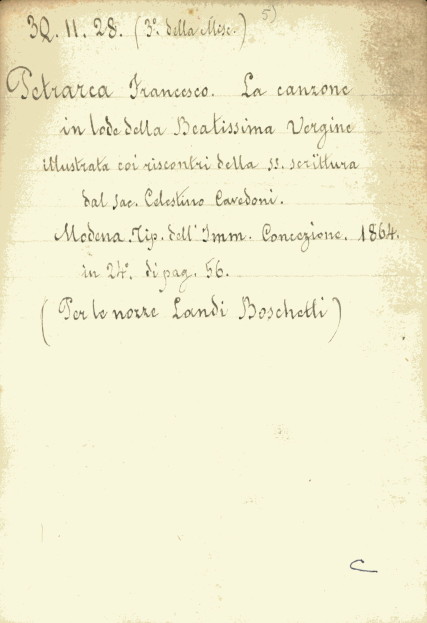 3Q. 11. 28. (3º della Misc.) 5)
Petrarca Francesco. La canzone
in lode della Beatissima Vergine
illustrata coi riscontri della ss. scrittura
dal sac. Celestino Cavedoni.
Modena. Tip. dell'Imm. Concezione. 1864.
in 24º. di pag. 56.
(Per le nozze Landi Boschetti)
C